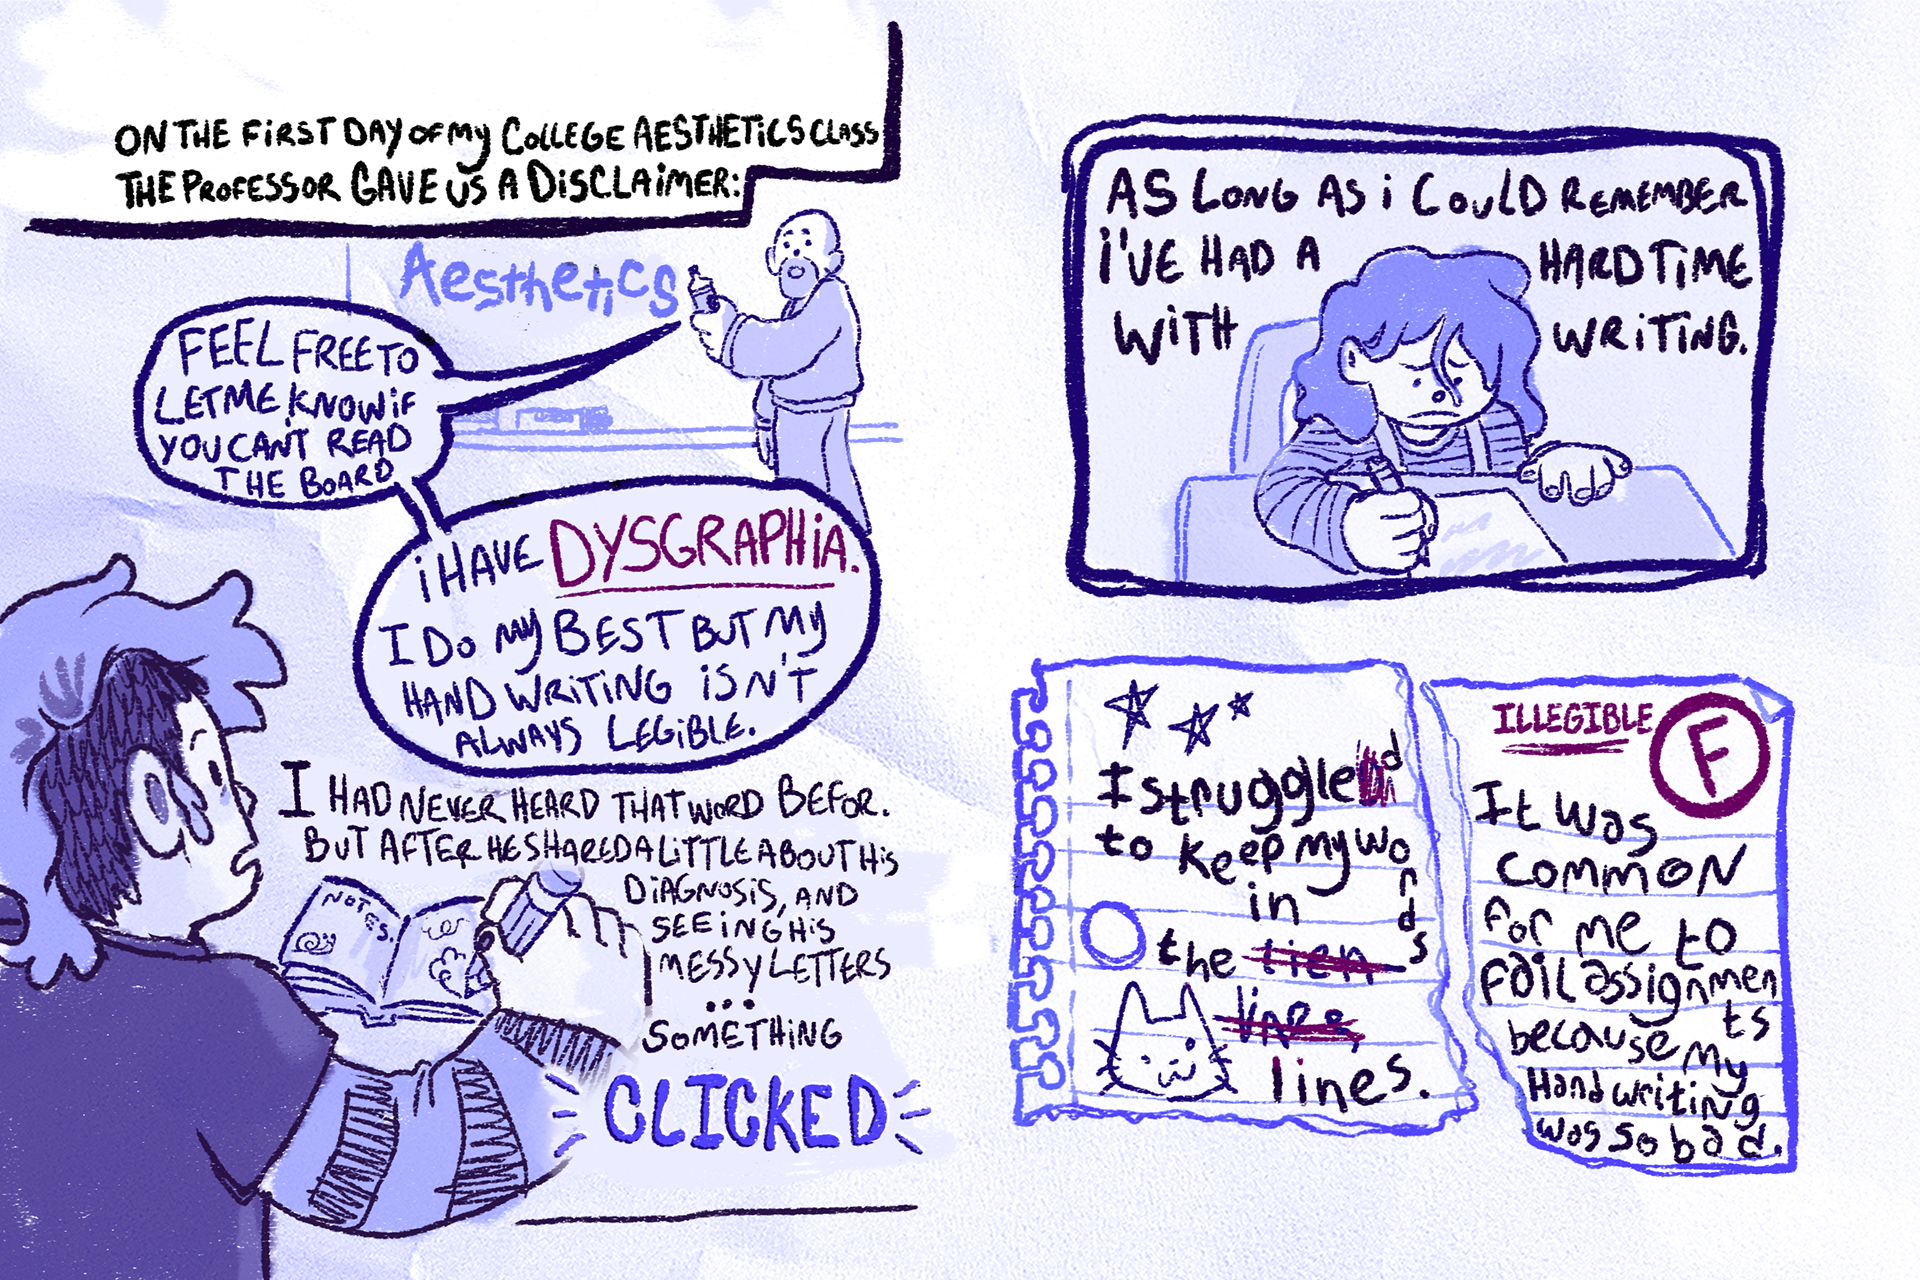 ON THE FIRST DAY OF MY COLLEGE AESTHETICS CLASS
THE PROFESSOR GAVE US A DISCLAIMER:
Aesthetics
FEEL FREE TO
LET ME KNOW IF
YOU CAN'T READ
THE BOARD
I HAVE DYSGRAPHIA.
I DO MY BEST BUT MY
HAND WRITING ISN'T
ALWAYS LEGIBLE.
I HAD NEVER HEARD THAT WORD BEFOR.
BUT AFTER HE SHARED A LITTLE ABOUT HIS
DIAGNOSIS, AND
SEEING HIS
MESSY LETTERS
...
SOMETHING
CLICKED
NOTES.
AS LONG AS I COULD REMEMBER
I'VE HAD A HARD TIME
WITH WRITING.
I struggled
to keep my words
in
the lien
lines
lines.
ILLEGIBLE F
It was
common
for me to
fail assignmen
ts
because my
Handwriting
was so bad.